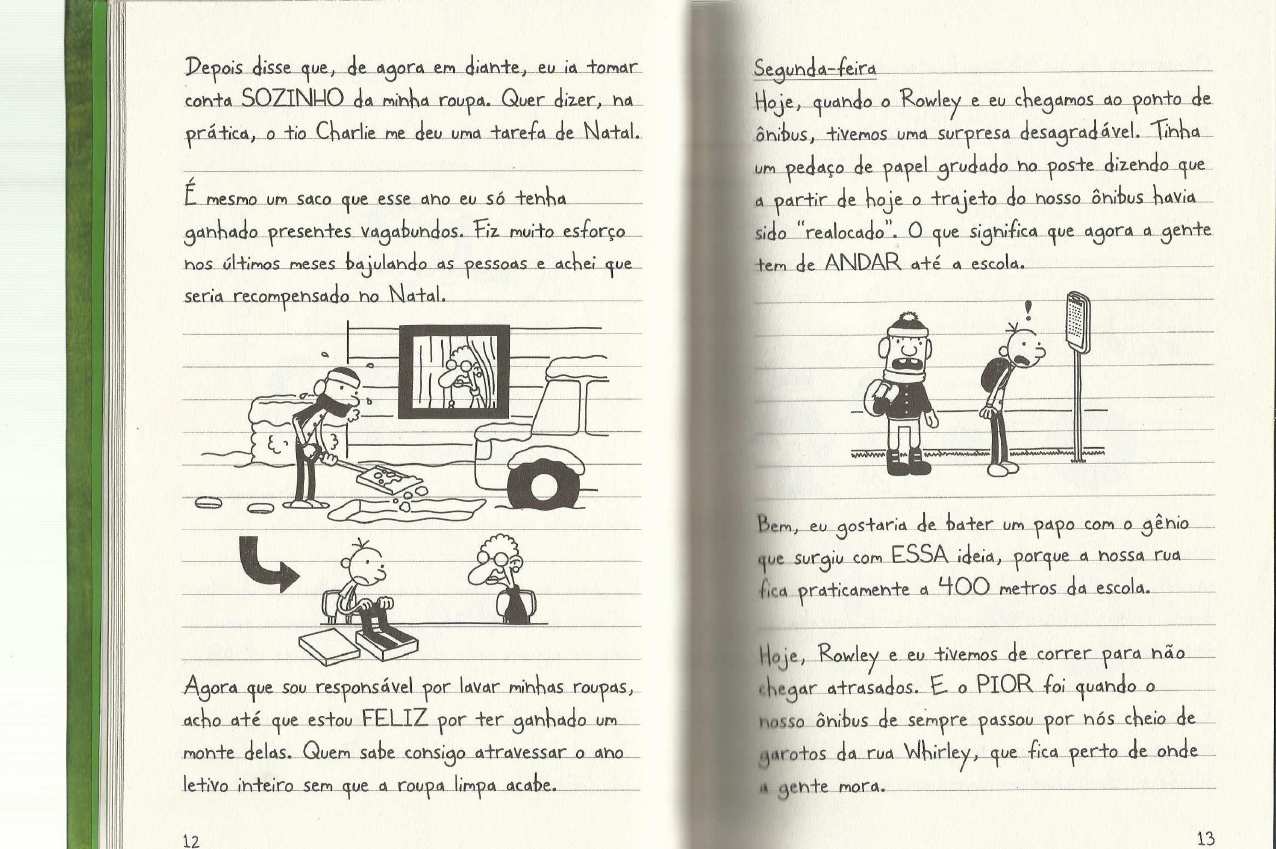 Depois disse que, de agora em diante, eu ia tomar
conta SOZINHO da minha roupa. Quer dizer, na
prática, o tio Charlie me deu uma tarefa de Natal.
É mesmo um saco que esse ano eu só tenha
ganhado presentes vagabundos. Fiz muito esforço
nos últimos meses bajulando as pessoas e achei que
seria recompensado no Natal.
Agora que sou responsável por lavar minhas roupas,
acho até que estou FELIZ por ter ganhado um
monte delas. Quem sabe consigo atravessar o ano
letivo inteiro sem que a roupa limpa acabe.
12
Segunda-feira
Hoje, quando o Rowley e eu chegamos ao ponto de
ônibus, tivemos uma surpresa desagradável. Tinha
um pedaço de papel grudado no poste dizendo que
a partir de hoje o trajeto do nosso ônibus havia
sido "realocado". O que significa que agora a gente
tem de ANDAR até a escola.
!
Bem, eu gostaria de bater um papo com o gênio
que surgiu com ESSA ideia, porque a nossa rua
fica praticamente a 400 metros da escola.
Hoje, Rowley e eu tivemos de correr para não
chegar atrasados. E o PIOR foi quando o
nosso ônibus de sempre passou por nós cheio de
garotos da rua Whirley, que fica perto de onde
a gente mora.
13